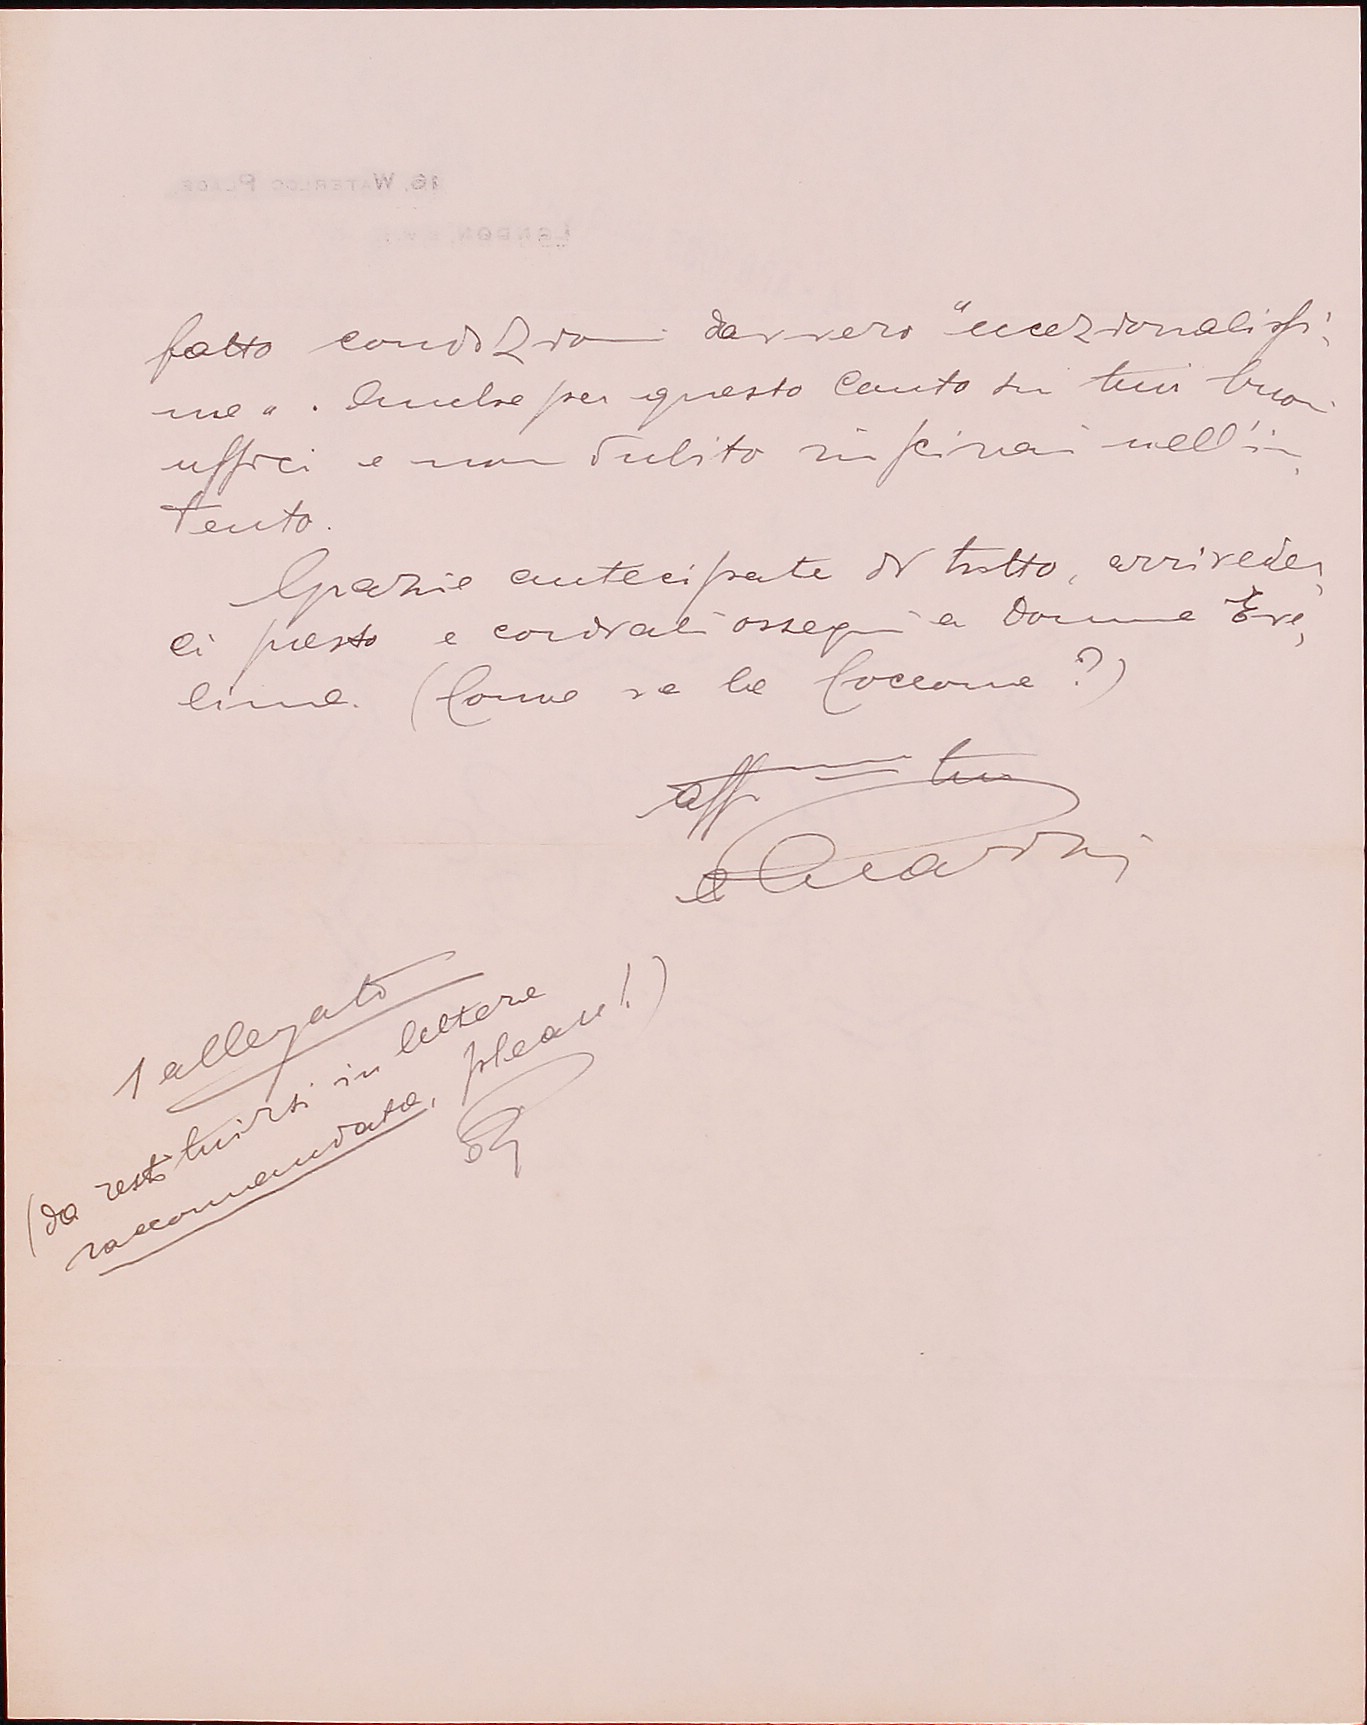 16, WATERLOO PLACE,
LONDON,
fatto condizioni davvero "eccezionalissi-
me". Anche per questo conto sui tuoi buoni
uffici e non dubito riuscirai nell'in-
tento.
Grazie antecipate di tutto, arriveder-
ci presto e cordiali ossequi a Donna Eve-
lina. (Come va la Coccona?)
aff tuo
1 allegato
(da restituirsi in lettera
raccomandata, please!)